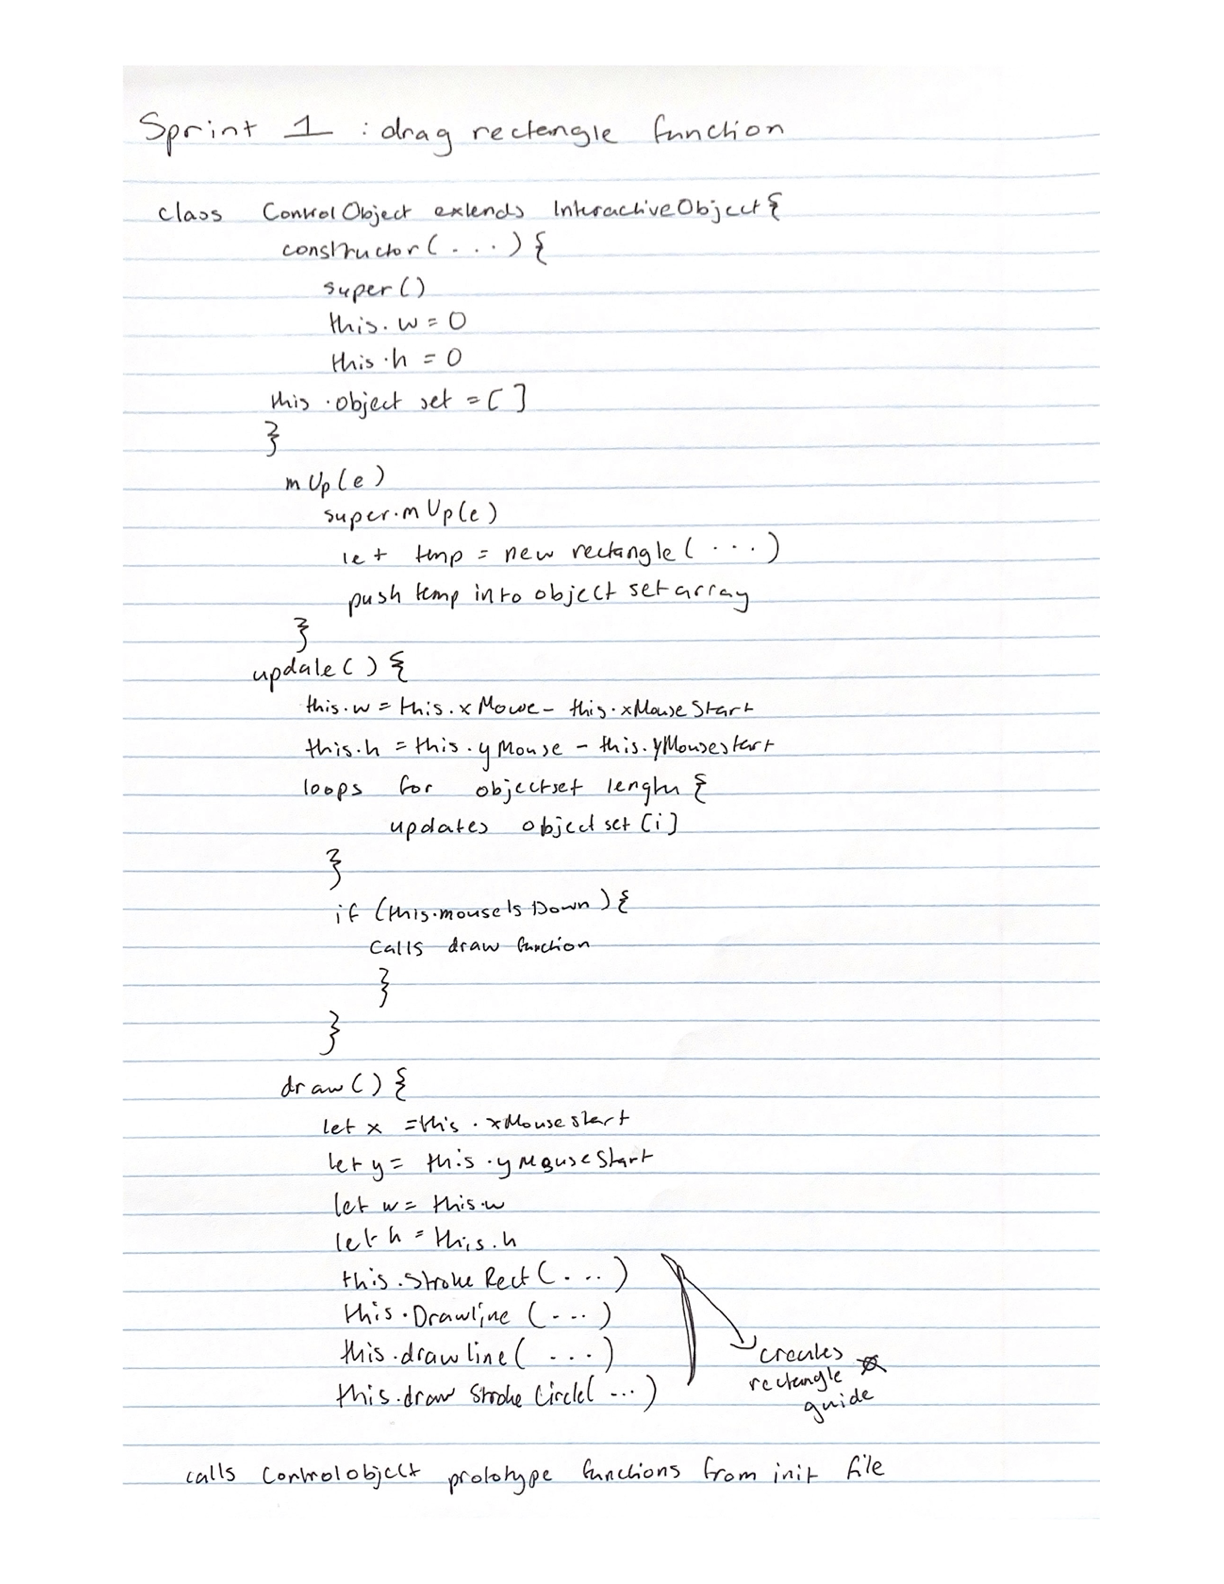 Sprint 1 : drag rectangle function
class ControlObject extends InteractiveObject {
constructor( . . . ) {
super()
this. w = 0
this .h = 0
this .object set = [ ]
}
m Up(e)
super.m Up(e)
let tmp = new rectangle( . . . )
push temp into object set array
}
update( ) {
this.w = this.x Mouse - this.xMouse Start
this.h = this.y Mouse - this.yMousestart
loops for objectset length {
updates object set [i]
}
if (this.mouse Is Down ) {
calls draw function
}
}
draw( ) {
let x = this . xMouse start
let y = this .y Mouse Start
let w = this.w
let h = this.h
this .Stroke Rect ( . . . )
this .Drawline ( . . . )
this .draw line ( . . . )
this .draw Stroke Circle( ... )
creates
rectangle
guide
calls Controlobject prototype functions from init file